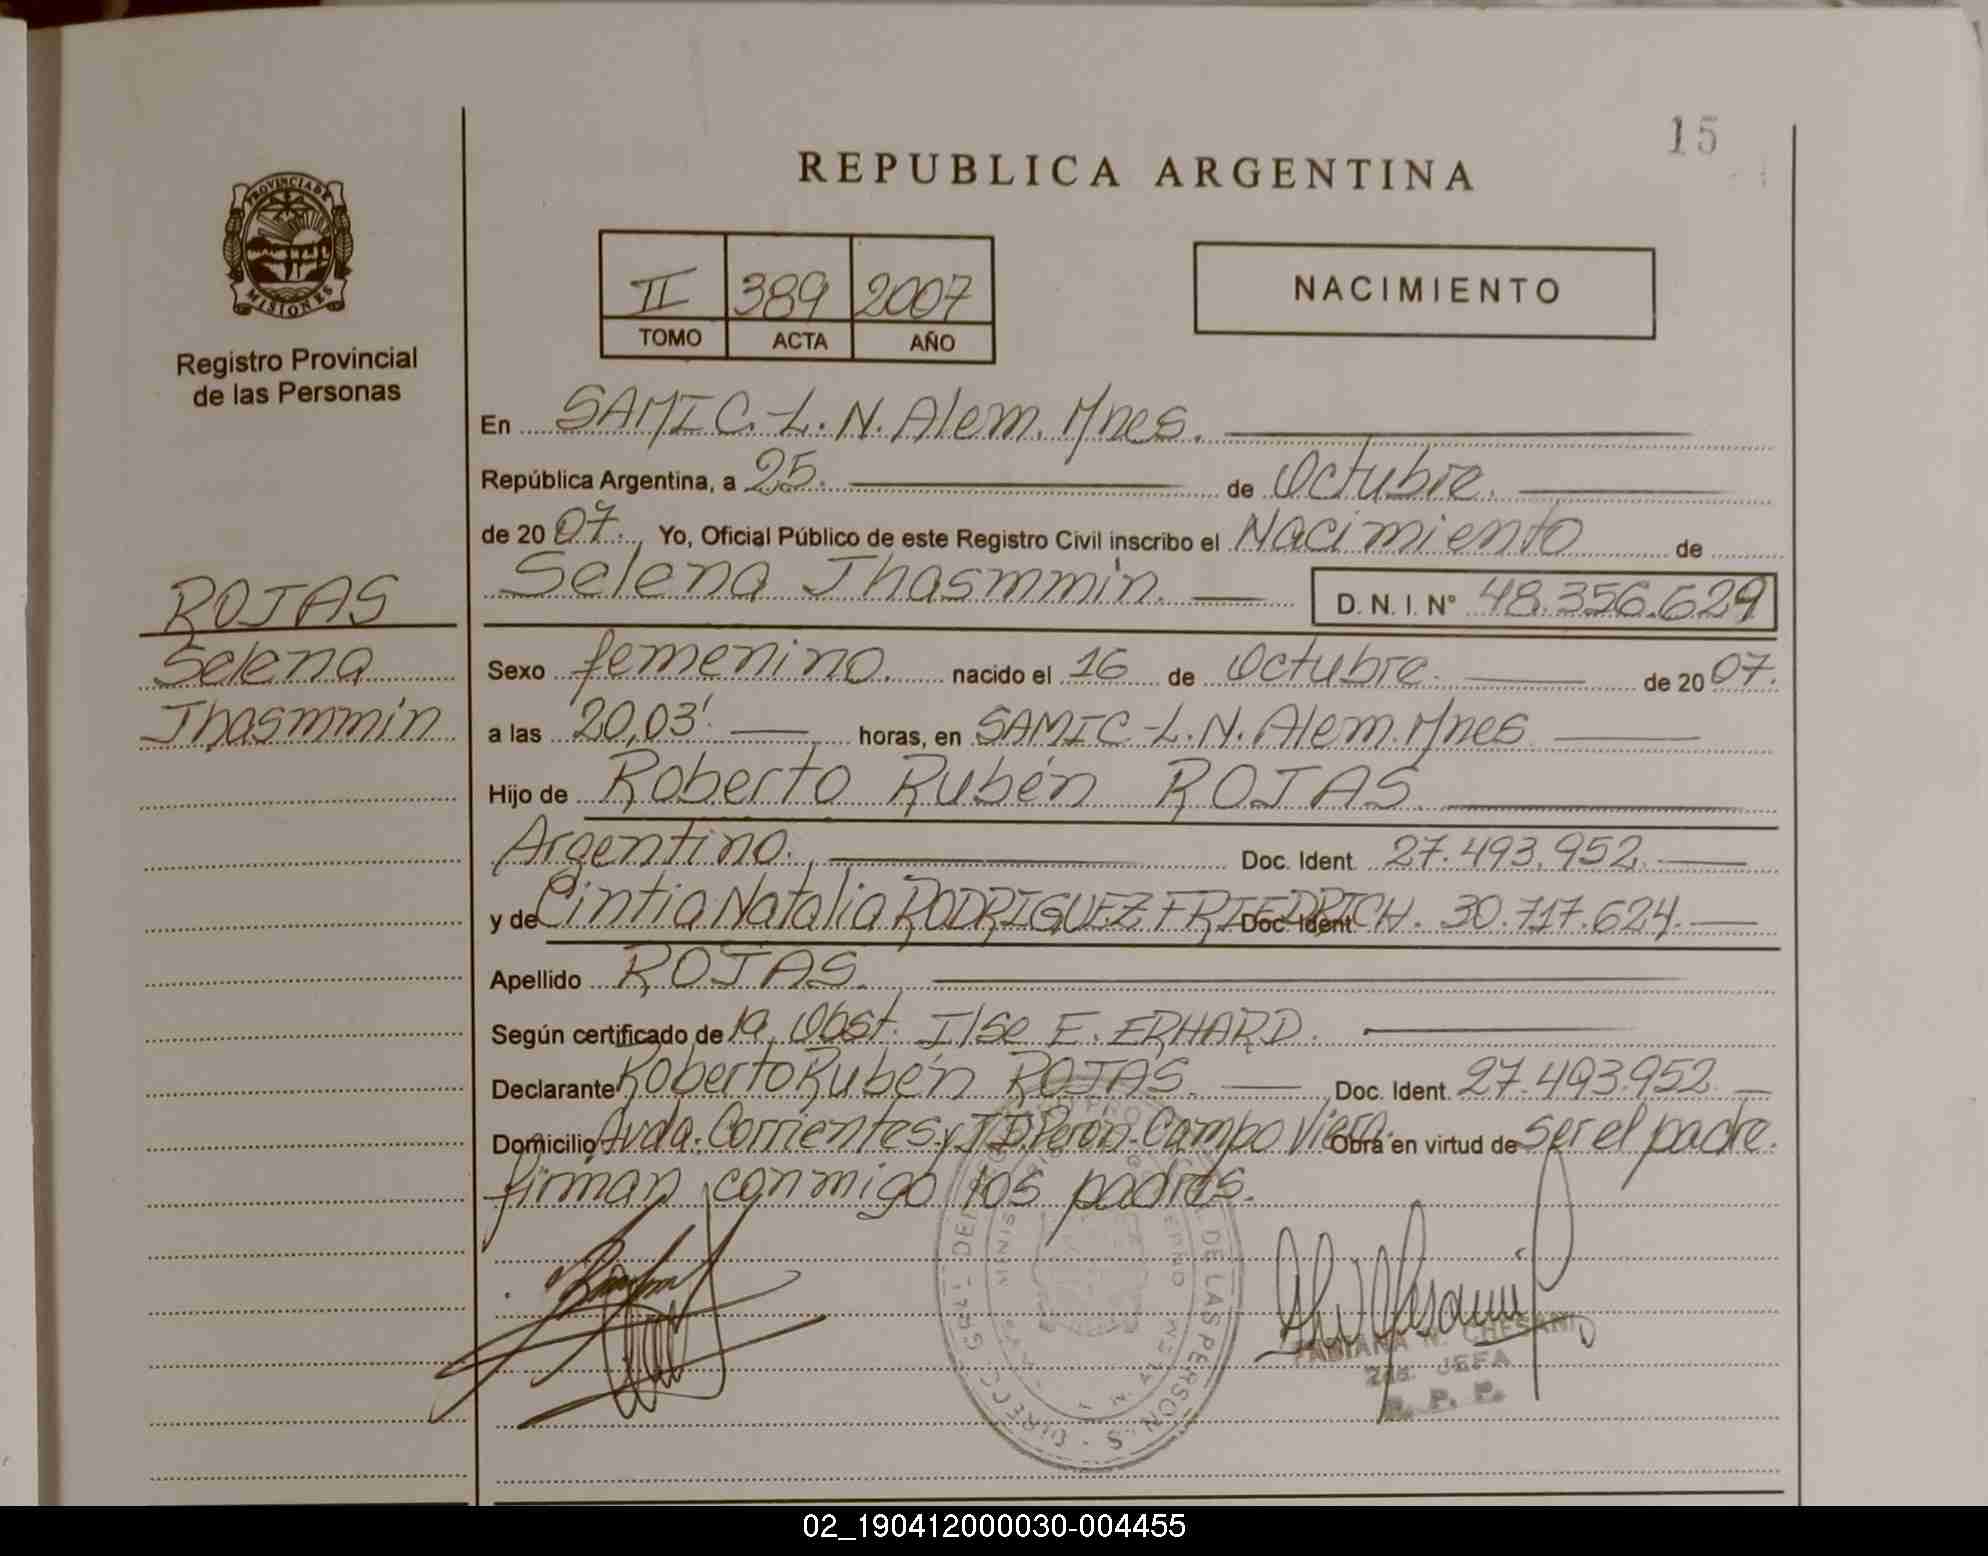 15
REPUBLICA ARGENTINA
PROVINCIA DE
MISIONES
Registro Provincial
de las Personas
II 389 2007
TOMO ACTA AÑO
NACIMIENTO
En SAMIC-L.N.Alem.Mnes.
República Argentina, a 25. de Octubre.
de 20 07. Yo, Oficial Público de este Registro Civil inscribo el Nacimiento de
Selena Jhasmmin. D. N. I. N° 48.356.629
ROJAS
Selena
Jhasmmin
Sexo femenino. nacido el 16 de Octubre. de 20 07.
a las 20,03'. horas, en SAMIC-L.N.Alem.Mnes
Hijo de Roberto Rubén ROJAS.
Argentino. Doc. Ident. 27.493.952.
y de Cintia Natalia RODRIGUEZ FRIEDRICH. Doc. Ident. 30.717.624.
Apellido ROJAS.
Según certificado de la Obst. Ilse E. ERHARD.
Declarante Roberto Rubén ROJAS. Doc. Ident. 27.493.952.
Domicilio Avda. Corrientes y J.D.Perón-Campo Viera. Obra en virtud de ser el padre.
firman conmigo los padres.
DE LAS PERSONAS
FABIANA N. CHESANI
2da. JEFA
R. P. P.
02_190412000030-004455